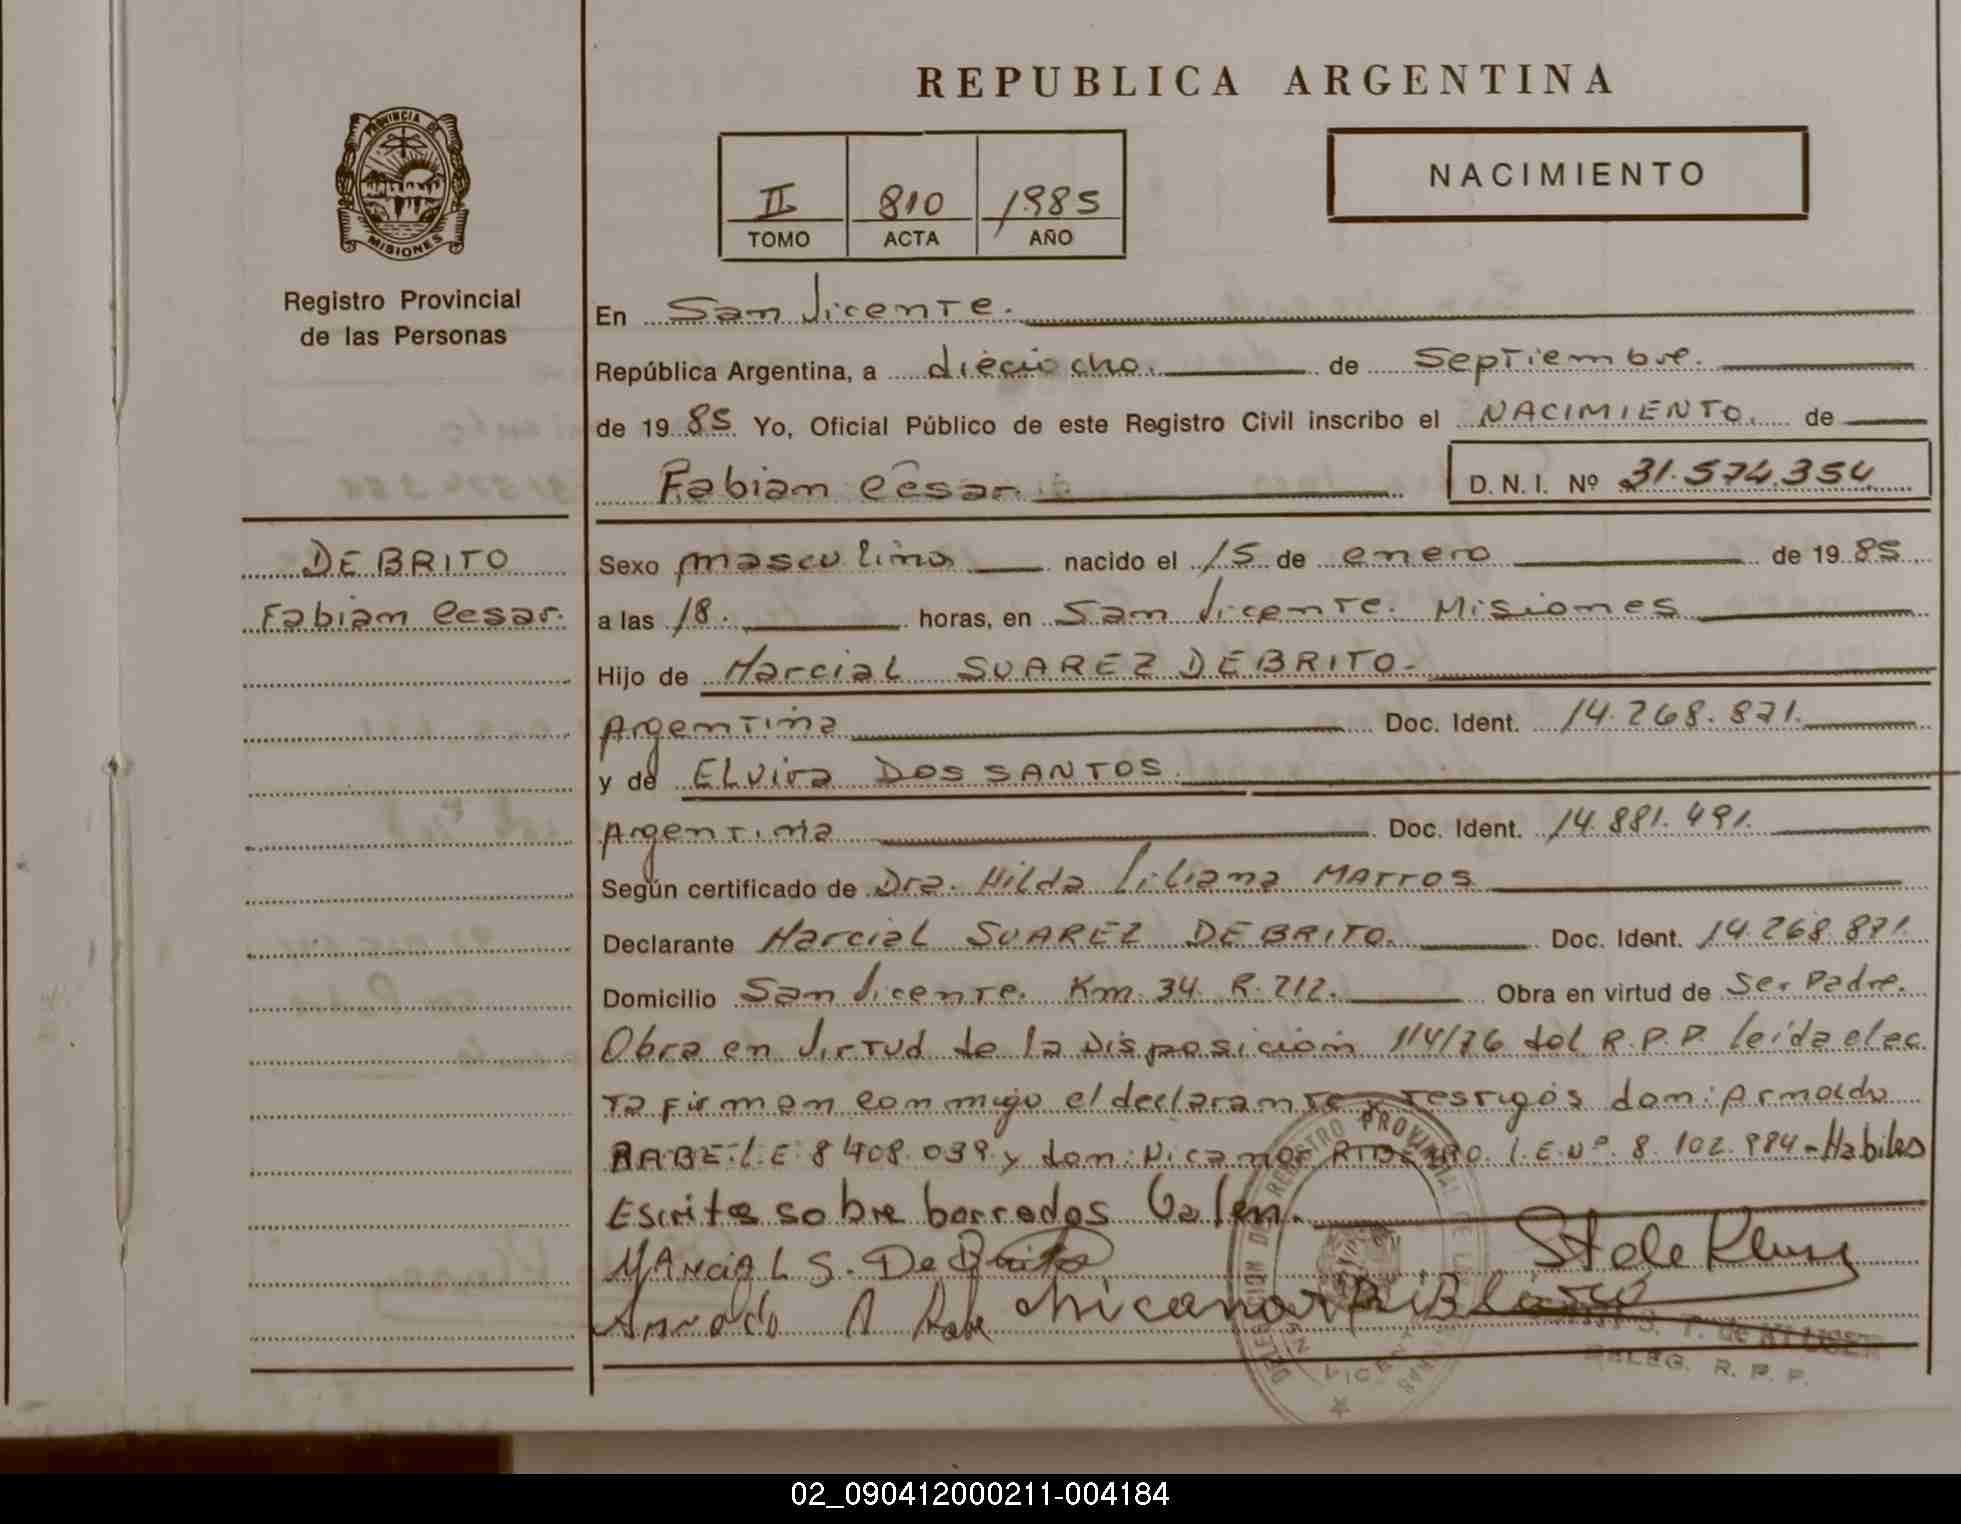 REPUBLICA ARGENTINA
PROVINCIA DE
MISIONES
Registro Provincial
de las Personas
II 810 1985
TOMO ACTA AÑO
NACIMIENTO
En San Vicente.
República Argentina, a dieciocho. de Septiembre.
de 19 85 Yo, Oficial Público de este Registro Civil inscribo el NACIMIENTO. de
Fabian Cesar. D. N. I. Nº 31.574.354
DE BRITO
Fabian Cesar.
Sexo masculino nacido el 15 de enero de 19 85
a las 18. horas, en San Vicente. Misiones
Hijo de Marcial SUAREZ DE BRITO.
Argentina Doc. Ident. 14.268.871.
y de ELvira DOS SANTOS
Argentina Doc. Ident. 14.881.491.
Según certificado de Dra. Hilda Liliana MARTOS
Declarante Marcial SUAREZ DE BRITO. Doc. Ident. 14.268.871.
Domicilio San Vicente. Km. 34 R. 212. Obra en virtud de Ser Padre.
Obra en Virtud de la Disposición 114/76 del R.P.P. leída el ac
ta firman conmigo el declarante y testigos don: Arnoldo
RABE. L.E. 8.408.039 y don: Nicanor RIBEIRO. L.E. Nº. 8.102.984 - Habiles
Escritos sobre borrados Valen.
MARCiAL S. De Brito
Arnoldo A Rabe Nicanor
S. T. de KLUSER
DELEG. R. P. P.
02_090412000211-004184